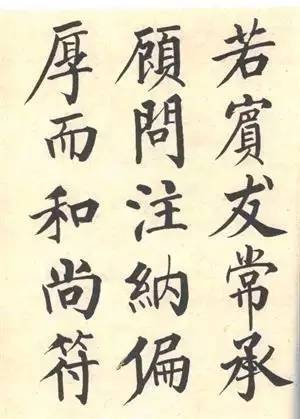 若賓友常承
顧問注納偏
厚而和尚符